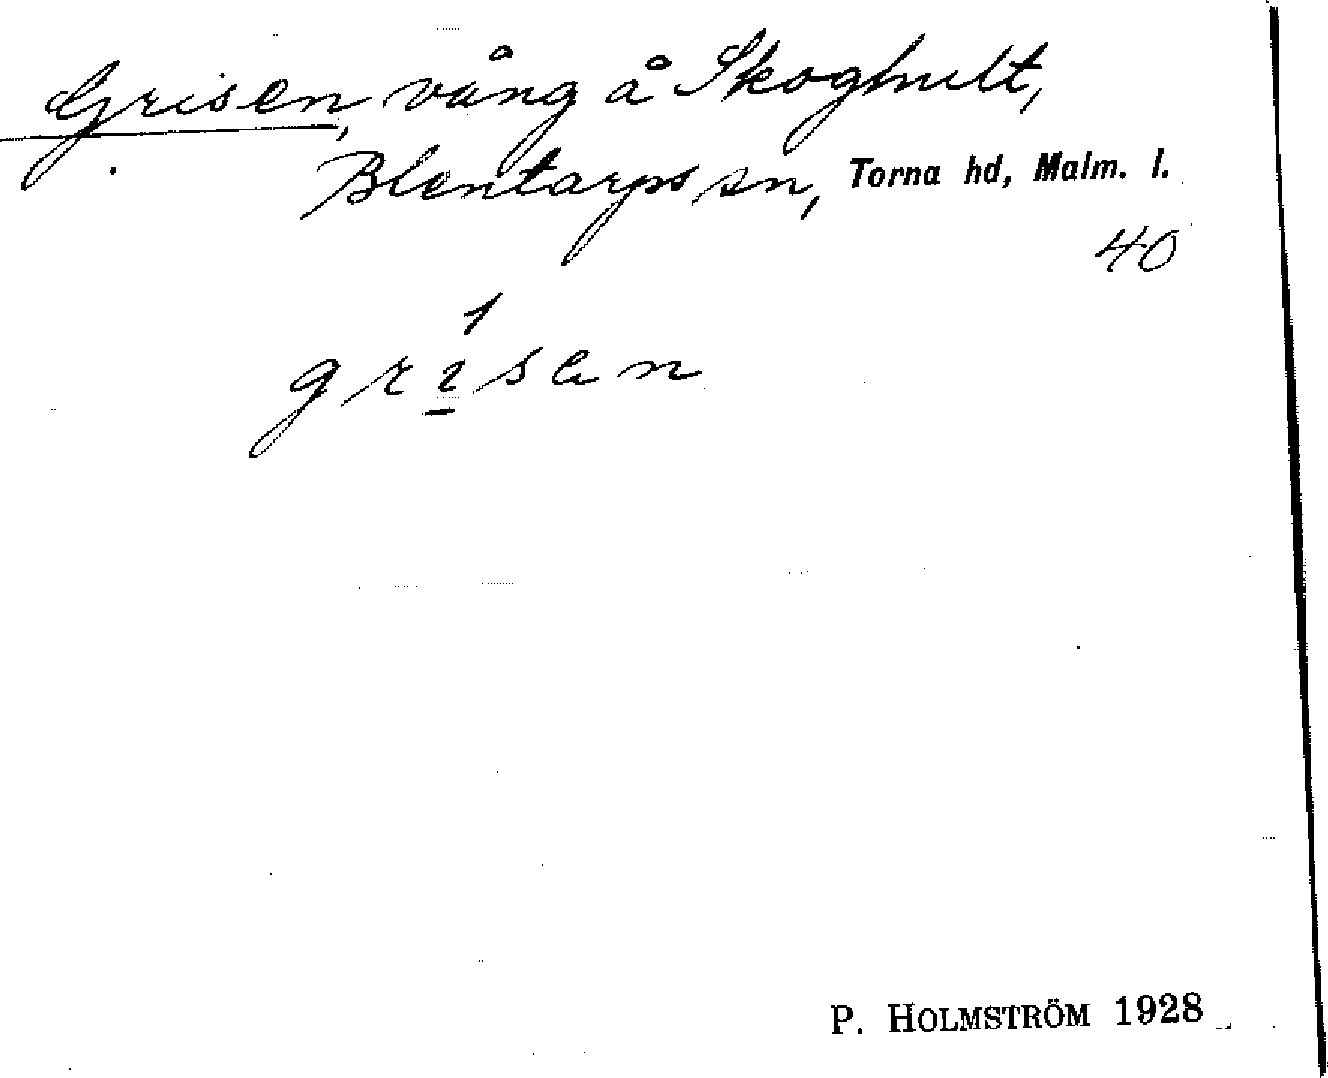 Grisen, vång å Skoghult,
Blentarps sn, Torna hd, Malm. l.
40
1
grisen
P. HOLMSTRÖM 1928